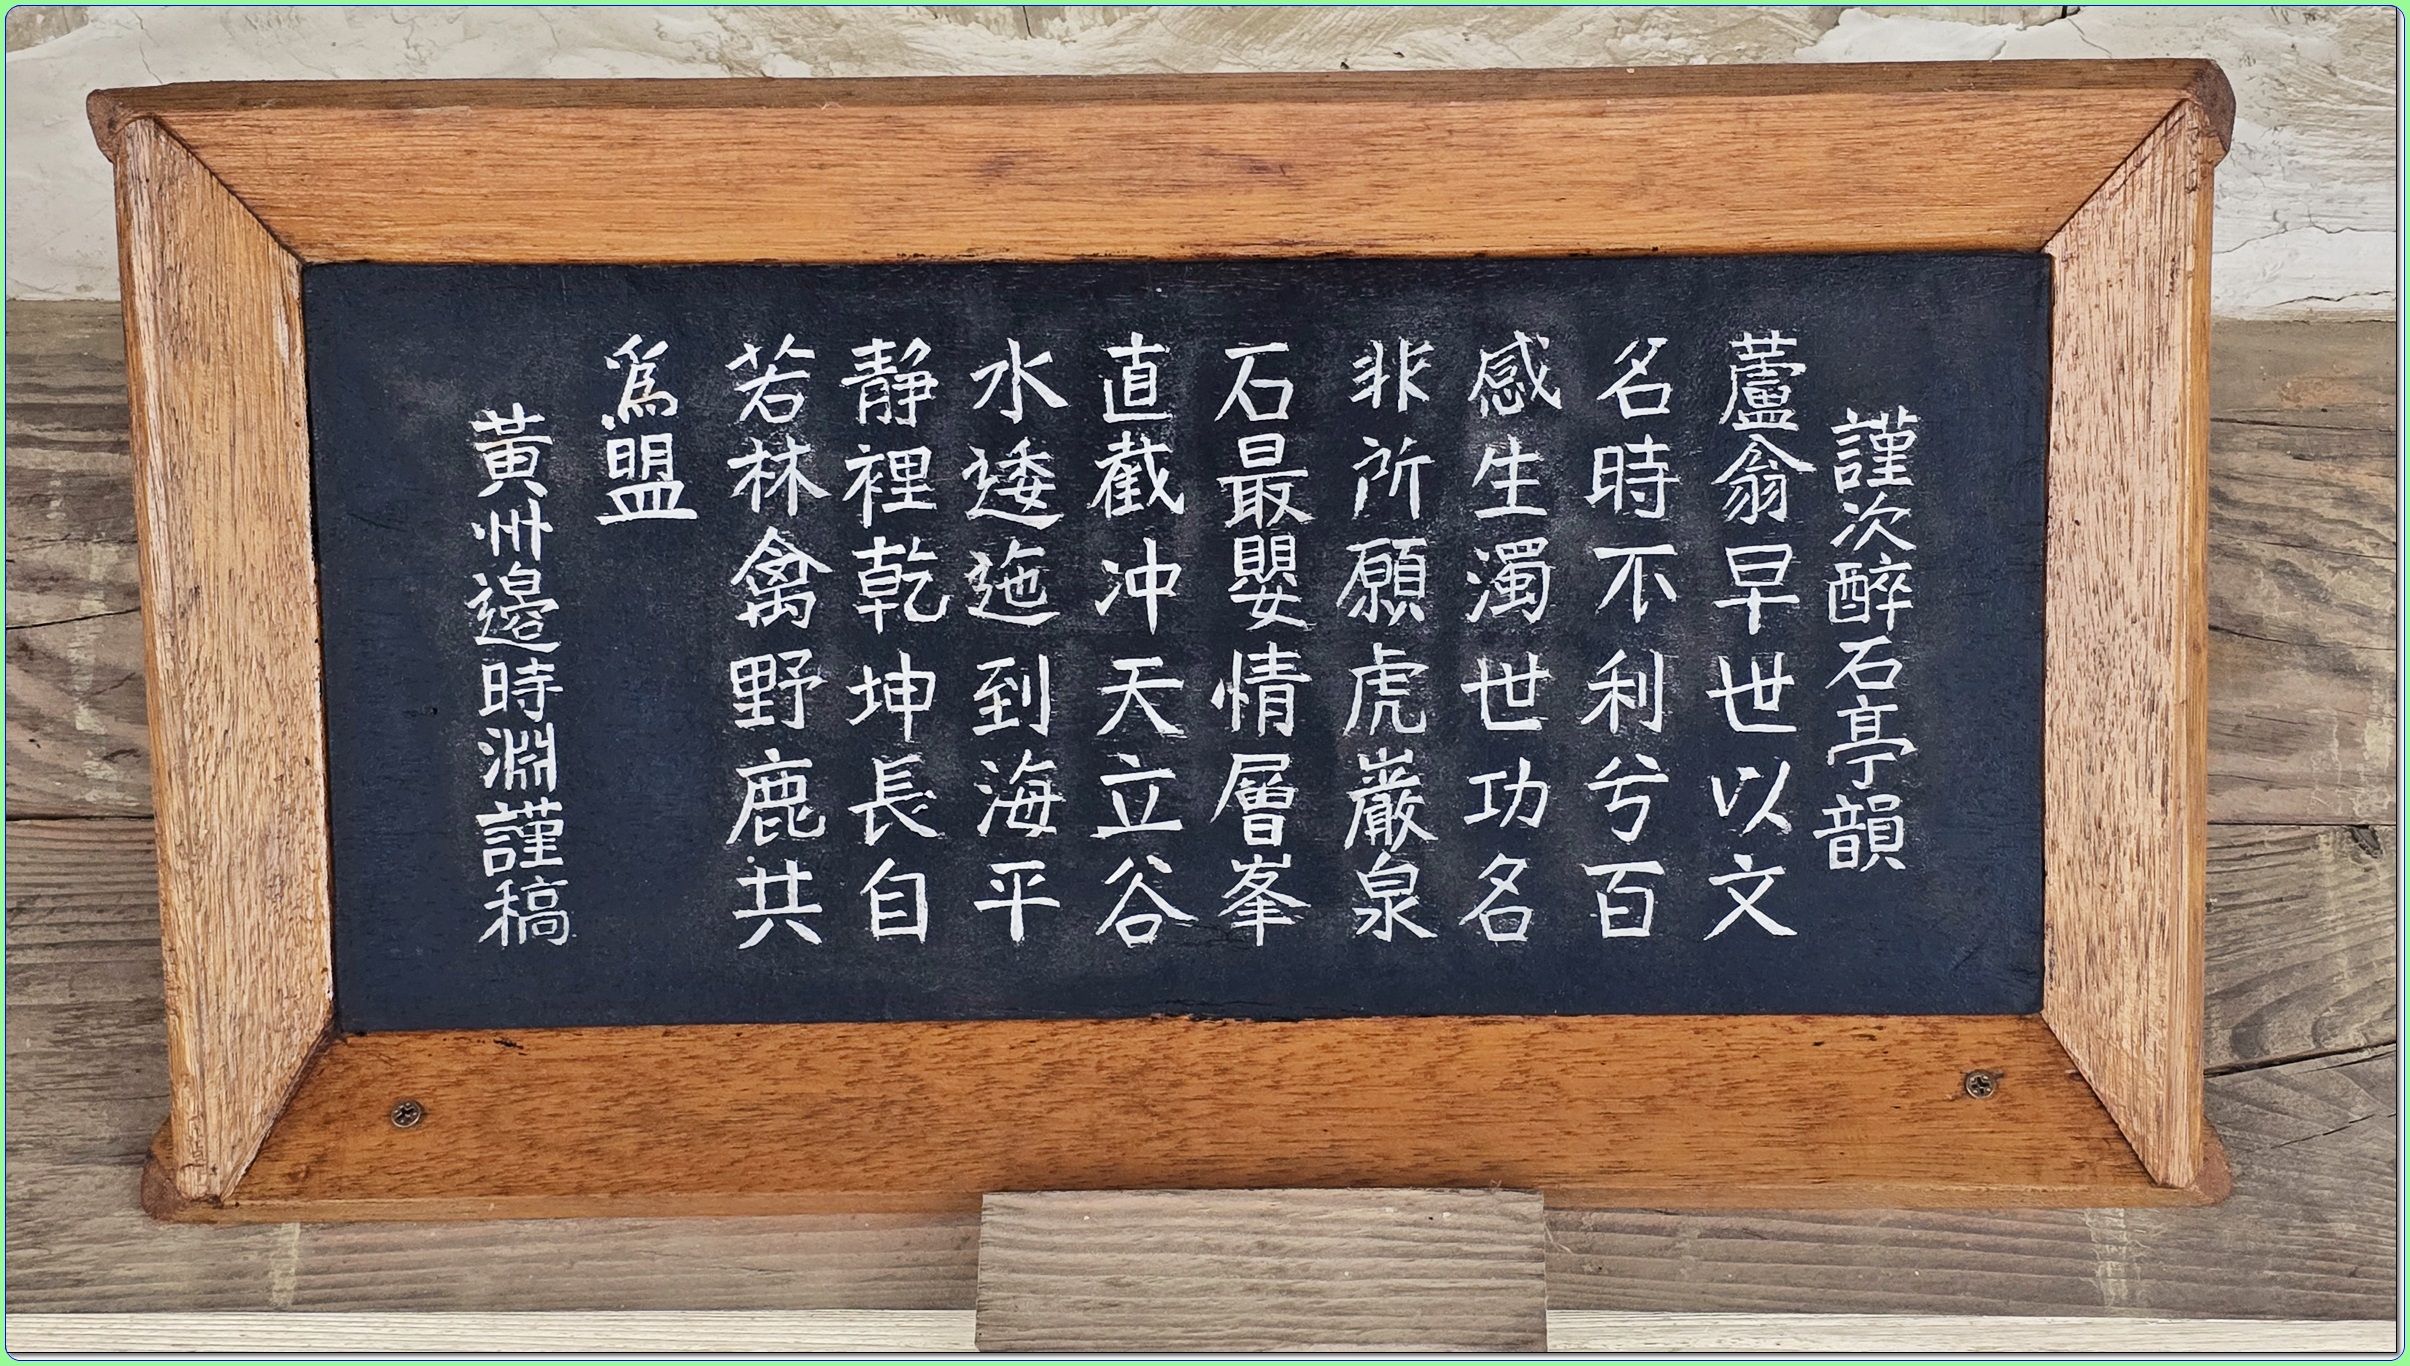 謹次醉石亭韻
蘆翁早世以文
名時不利兮百
感生濁世功名
非所願虎巖泉
石最嬰情層峯
直截冲天立谷
水逶迤到海平
静裡乾坤長自
若林禽野鹿共
為盟
黃州邊時淵謹稿